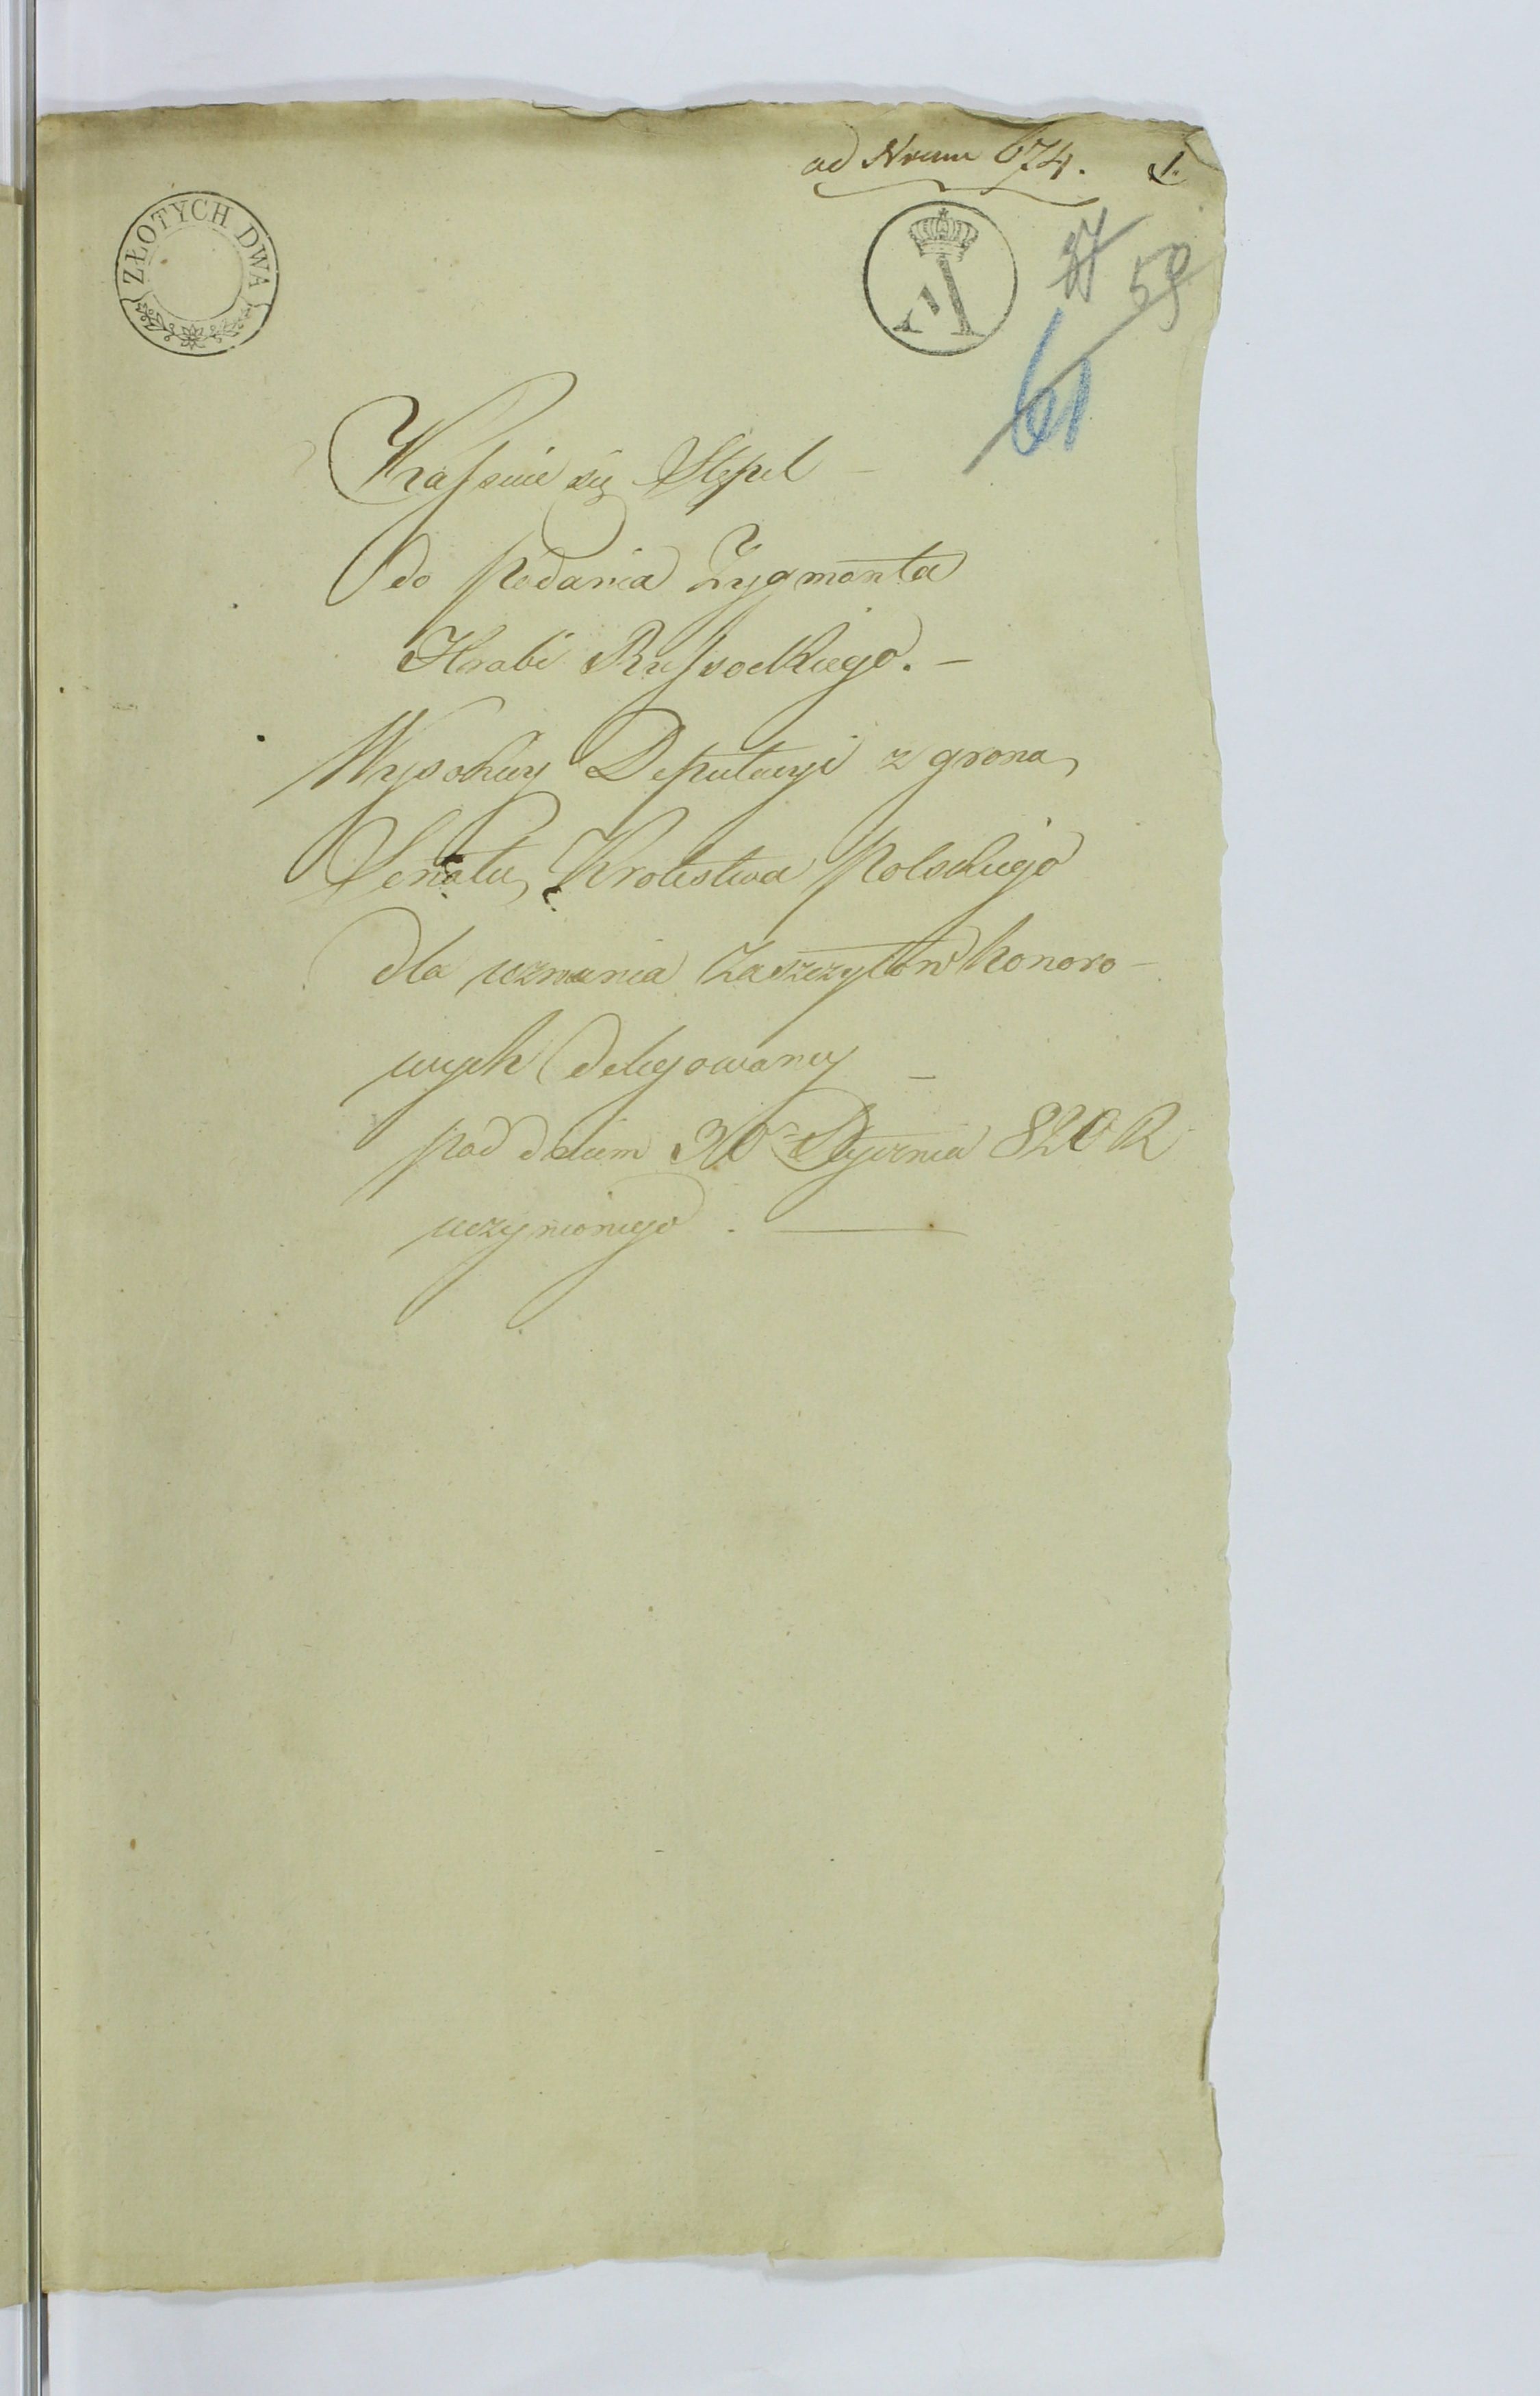 ad Nrum 674. 1.
ZŁOTYCH DWA
A
37 59
61
Krassuie się Stępel —
do podania Zygmonta
Hrabi Russockiego. —
Wysokiey Deputacyi z grona
Senatu Krolestwa Polskiego
dla uznania Zaszczytow honoro-
wych delegowaney —
pod dniem 30 Stycznia 820 R
uczynionego. —